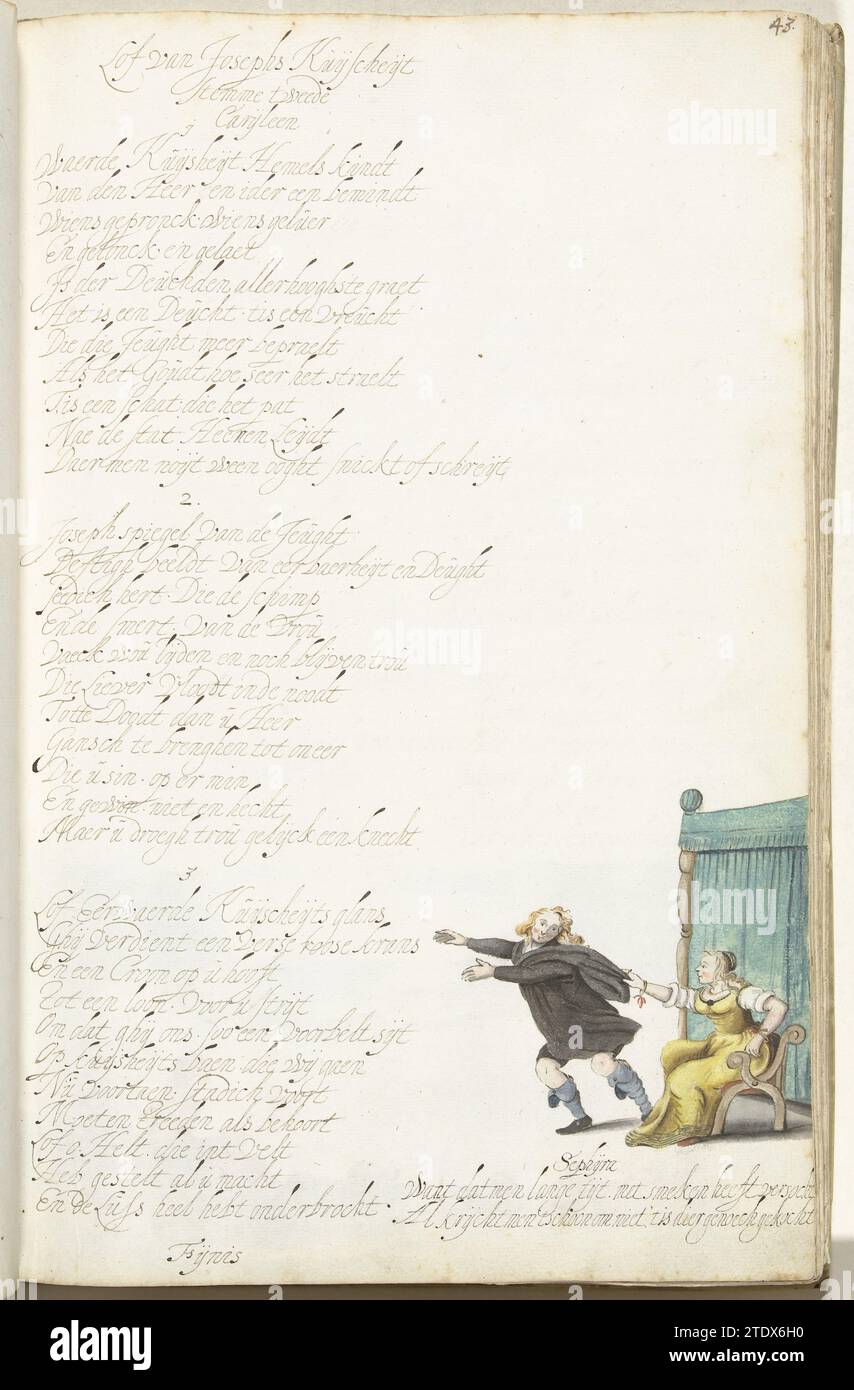 43.
Lof van Josephs Kuÿscheÿt
Stemme tweede
Carÿleen
Waerde Kuÿsheÿt Hemels kindt
Van den Heer en ider een bemindt
Wiens gepronck. Wiens geluer
En gelonck. en gelaet
Is der Deuchden allerhooghste graet
Het is een Deucht. tis een vreucht
Die die Jeught meer bepraelt
Als het Goudt hoe seer het straelt
Tis een schat die het pat
Nae de stat Heenen Leÿdt
Daer men noÿt ween ooght snickt of schreÿt
2.
Joseph spiegel van de Jeught
Deftigh beeldt van eerbaerheÿt en Deught
seedich hert. Die de schimp
Ende smert. van de Vrou
Vaeck wou lÿden en noch blÿven trou
Die Liever in de noodt
Totte Doodt dan u Heer
Gansch te brenghen tot oneer
Die u sin. op er min
En niet en hecht
Maer u droegh trou gelÿck een knecht
3
Lof Eerwaerde Kuÿscheÿts glans
Ghÿ Verdient een verse roose krans
En een Croon op u hooft
Tot een loon. Voor u strÿt
Om dat ghÿ ons. soo een Voorbelt sÿt
Op kuÿsheÿts baen die wÿ gaen
Nu voortaen. stadich voort
Moeten treeden als behoort
Lof o Helt. die int velt
Heb gestelt al u macht
En de Lust heel hebt onderbrocht
Fÿnis
Sephÿra
Want dat men lange tÿt met smeken heeft versocht
Al krÿcht men tschoon om niet, tis dier genoech gekocht
alamy
Image ID: 2TDX6H0
www.alamy.com